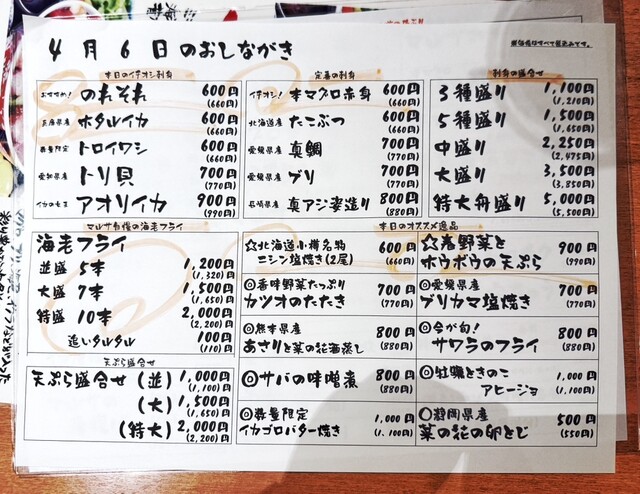 4月6日のおしながき
本日のイチオシ刺身
おすすめ! のれそれ 600円 (660円)
兵庫県産 ホタルイカ 600円 (660円)
数量限定 トロイワシ 600円 (660円)
愛知県産 トリ貝 700円 (770円)
イカの女王 アオリイカ 900円 (990円)
定番の刺身
イチオシ! 本マグロ赤身 600円 (660円)
北海道産 たこぶつ 600円 (660円)
愛媛県産 真鯛 700円 (770円)
愛媛県産 ブリ 700円 (770円)
長崎県産 真アジ姿造り 800円 (880円)
刺身の盛合せ
3種盛り 1,100円 (1,210円)
5種盛り 1,500円 (1,650円)
中盛り 2,250円 (2,475円)
大盛り 3,500円 (3,850円)
特大舟盛り 5,000円 (5,500円)
マルサ自慢の海老フライ
海老フライ
並盛 5本 1,200円 (1,320円)
大盛 7本 1,500円 (1,650円)
特盛 10本 2,000円 (2,200円)
追いタルタル 100円 (110円)
天ぷら盛合せ
天ぷら盛合せ (並) 1,000円 (1,100円)
(大) 1,500円 (1,650円)
(特大) 2,000円 (2,200円)
本日のオススメ逸品
☆北海道小樽名物
ニシン塩焼き(2尾) 600円 (660円)
◎香味野菜たっぷり
カツオのたたき 700円 (770円)
◎熊本県産
あさりと菜の花酒蒸し 800円 (880円)
◎サバの味噌煮 800円 (880円)
◎数量限定
イカゴロバター焼き 1,000円 (1,100円)
☆春野菜と
ホウボウの天ぷら 900円 (990円)
◎愛媛県産
ブリカマ塩焼き 700円 (770円)
◎今が旬!
サワラのフライ 800円 (880円)
◎牡蠣ときのこ
アヒージョ 1,000円 (1,100円)
○静岡県産
菜の花の卵とじ 500円 (550円)